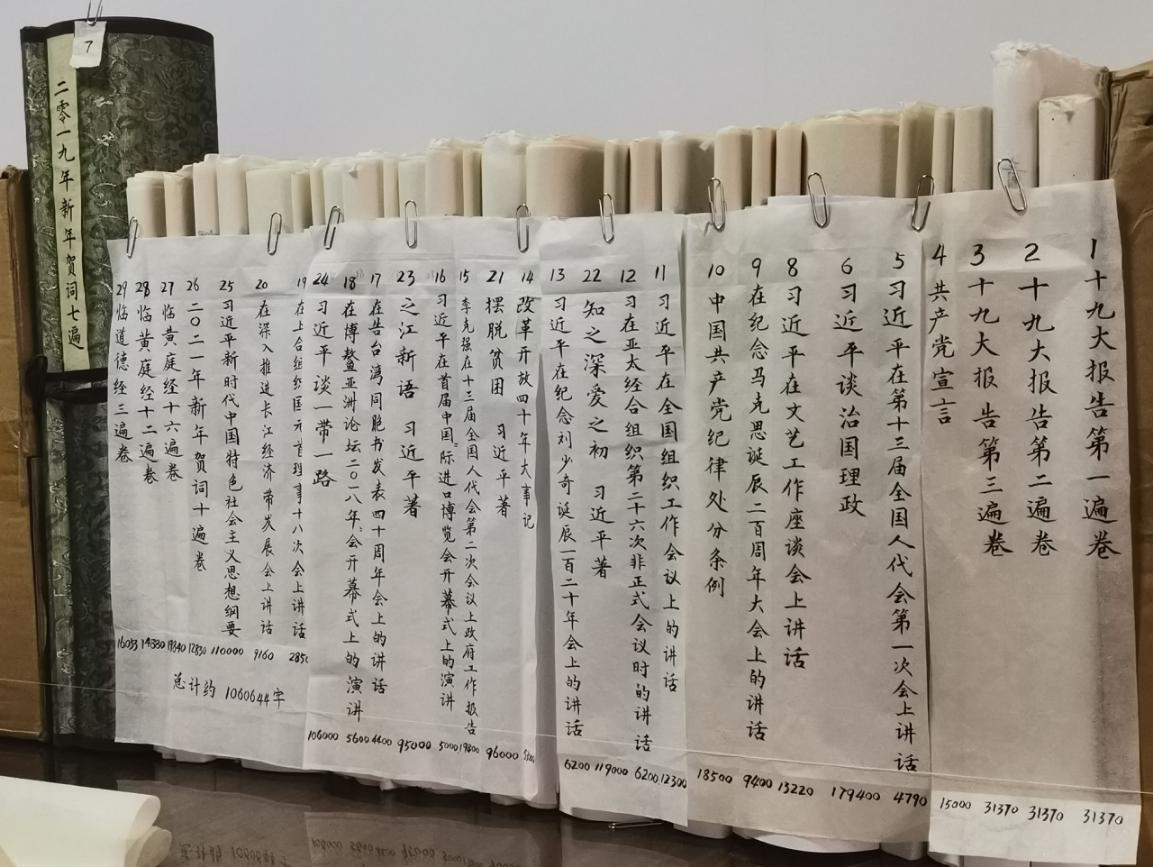 1 十九大报告第一遍卷 31370
2 十九大报告第二遍卷 31370
3 十九大报告第三遍卷 31370
4 共产党宣言 15000
5 习近平在第十三届全国人代会第一次会上讲话 4790
6 习近平谈治国理政 179400
8 习近平在文艺工作座谈会上讲话 13220
9 在纪念马克思诞辰二百周年大会上的讲话 9400
10 中国共产党纪律处分条例 18500
11 习近平在全国组织工作会议上的讲话 12300
12 习在亚太经合组织第二十六次非正式会议时的讲话 6200
22 知之深爱之初 习近平著 119000
13 习近平在纪念刘少奇诞辰一百二十年会上的讲话 6200
14 改革开放四十年大事记
21 摆脱贫困 习近平著 96000
15 李克强在十三届全国人代会第二次会议上政府工作报告 19800
16 习近平在首届中国际进口博览会开幕式上的演讲 5000
23 之江新语 习近平著 95000
17 在告台湾同胞书发表四十周年会上的讲话 4400
18 在博鳌亚洲论坛二〇一八年会开幕式上的演讲 5600
24 习近平谈一带一路 106000
19 在上合组织国元首理事十八次会上讲话 2850
20 在深入推进长江经济带发展会上讲话 9160
25 习近平新时代中国特色社会主义思想纲要 110000
26 二〇二一年新年贺词十遍卷 12830
27 临黄庭经十六遍卷 19340
28 临黄庭经十二遍卷
29 临道德经三遍卷 16053
总计约 1060644字
7
二零一九年新年贺词七遍